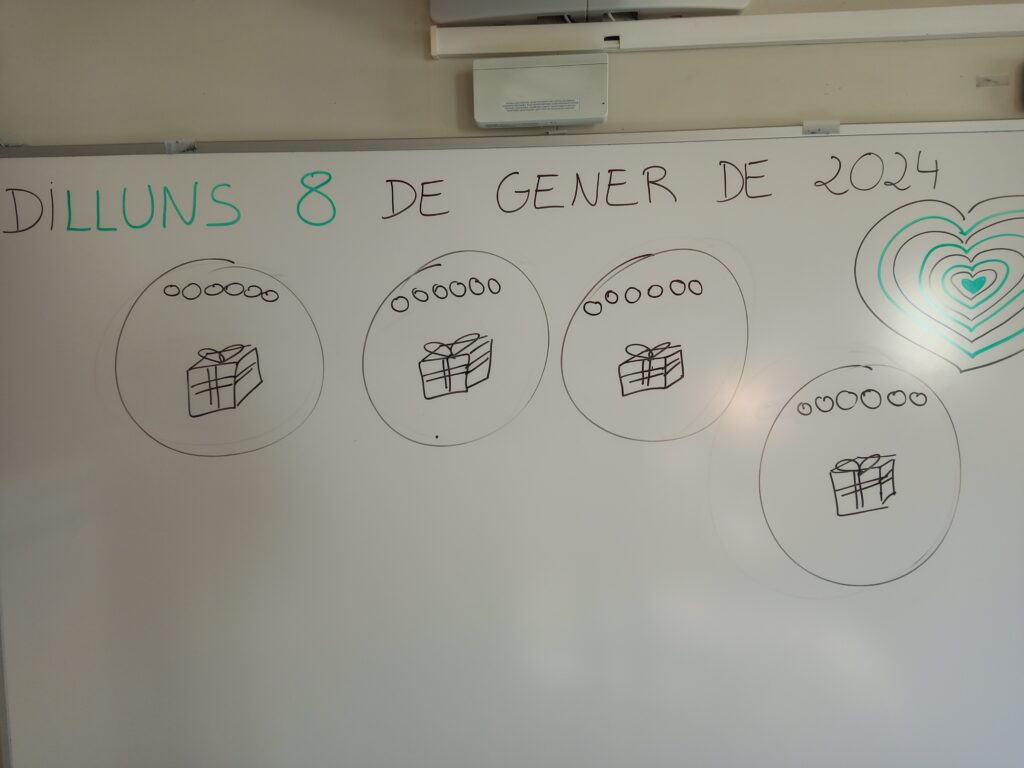 DiLLUNS 8 DE GENER DE 2024